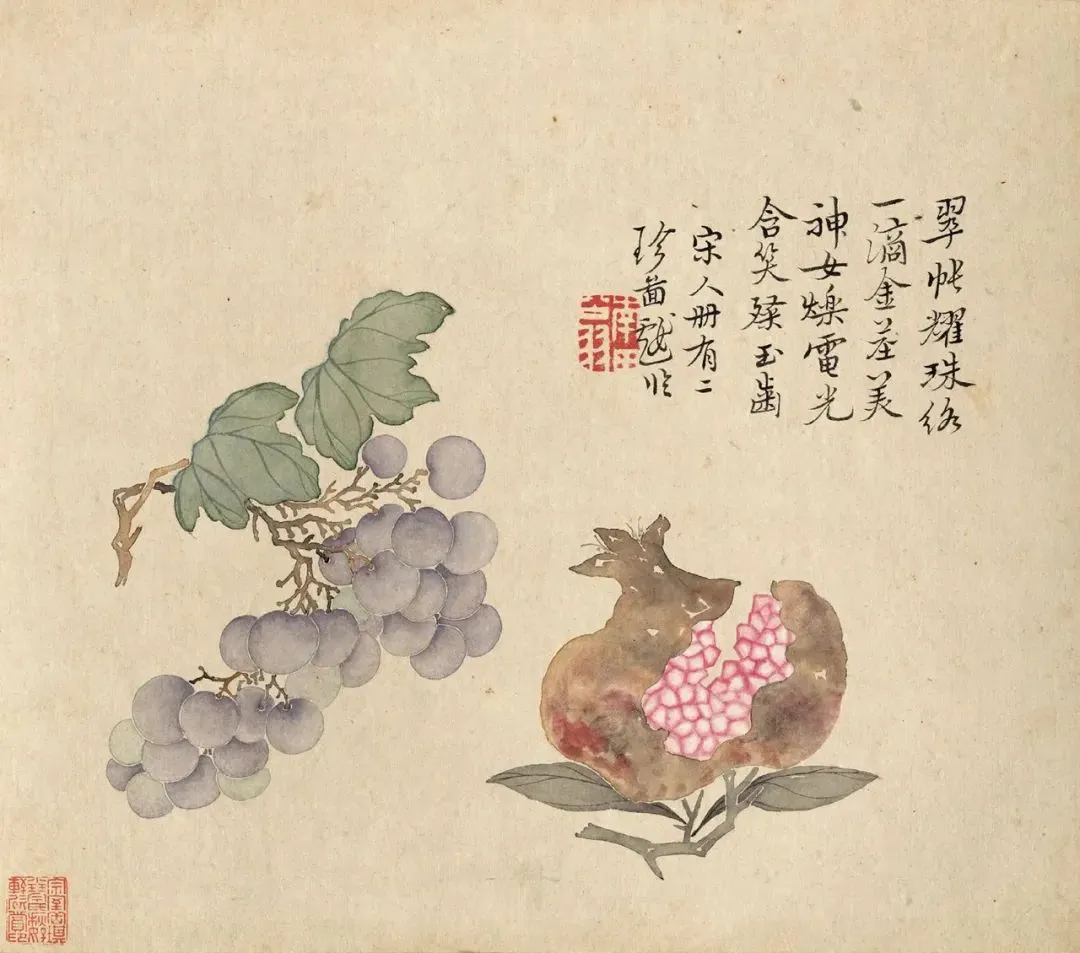 翠帐耀珠络
一滴金茎美
神女爍電光
含笑粲玉齒
宋人册有二
珍啚戲临